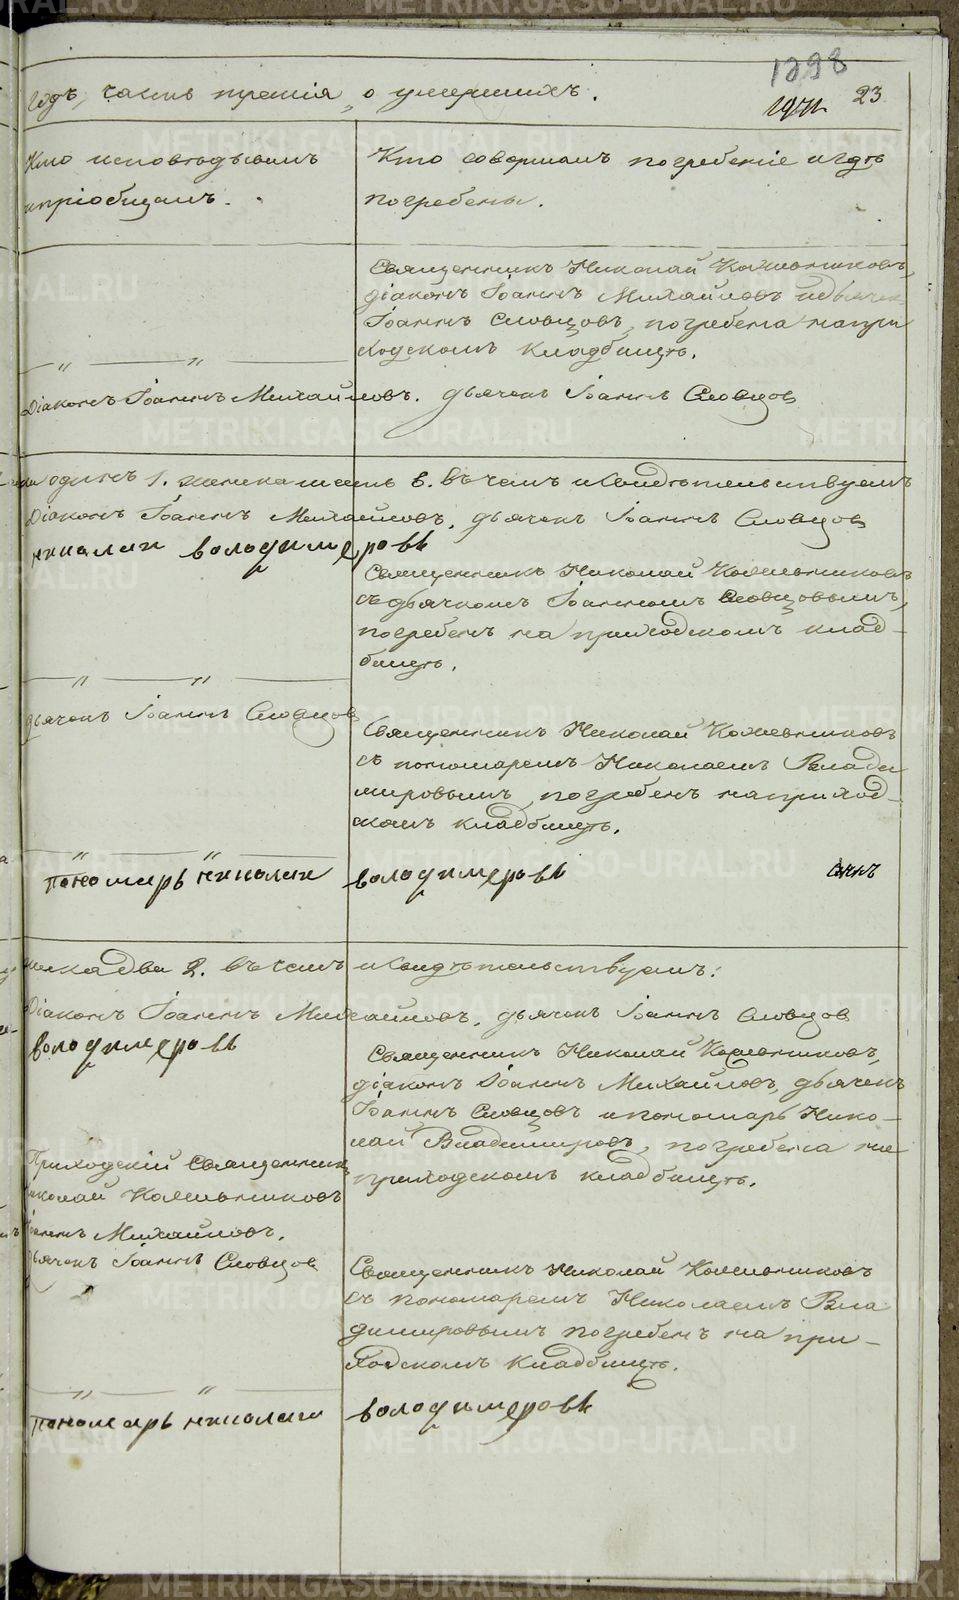 1298
годъ, часть третія, о умершихъ.
1971 23
Кто исповѣдывалъ
и пріобщалъ.
Кто совершалъ погребеніе и гдѣ
погребены.
Священникъ Николай Кожевниковъ,
діаконъ Іоаннъ Михайловъ и дьячекъ
Іоаннъ Словцовъ, погребена на при
ходскомъ кладбищѣ.
Діаконъ Іоаннъ Михайловъ. дьячекъ Іоаннъ Словцовъ
одинъ 1. женска шесть 6. въ чемъ и свидѣтельствуемъ
Діаконъ Іоаннъ Михайловъ. дьячекъ Іоаннъ Словцовъ
николаи володимеровъ
Священникъ Николай Кожевниковъ
съ дьячкомъ Іоанномъ Словцовымъ,
погребенъ на приходскомъ клад-
бищѣ.
дьячекъ Іоаннъ Словцовъ
Священникъ Николай Кожевниковъ
съ пономаремъ Николаемъ Влади
мировымъ погребенъ на приход-
скомъ кладбищѣ.
пономарь николаи володимеровъ
женска два 2. въ чемъ и свидѣтельствуемъ:
Діаконъ Іоаннъ Михайловъ. дьячекъ Іоаннъ Словцовъ
володимеровъ
Священникъ Николай Кожевниковъ,
діаконъ Іоаннъ Михайловъ, дьячекъ
Іоаннъ Словцовъ и пономарь Нико-
лай Владимировъ, погребена на
приходскомъ кладбищѣ.
Приходскій Священникъ
Николай Кожевниковъ
Іоаннъ Михайловъ.
дьячекъ Іоаннъ Словцовъ
Священникъ Николай Кожевниковъ
съ пономаремъ Николаемъ Вла
димировымъ погребенъ на при-
ходскомъ кладбищѣ.
пономарь николаи володимеровъ
METRIKI.GASO-URAL.RU